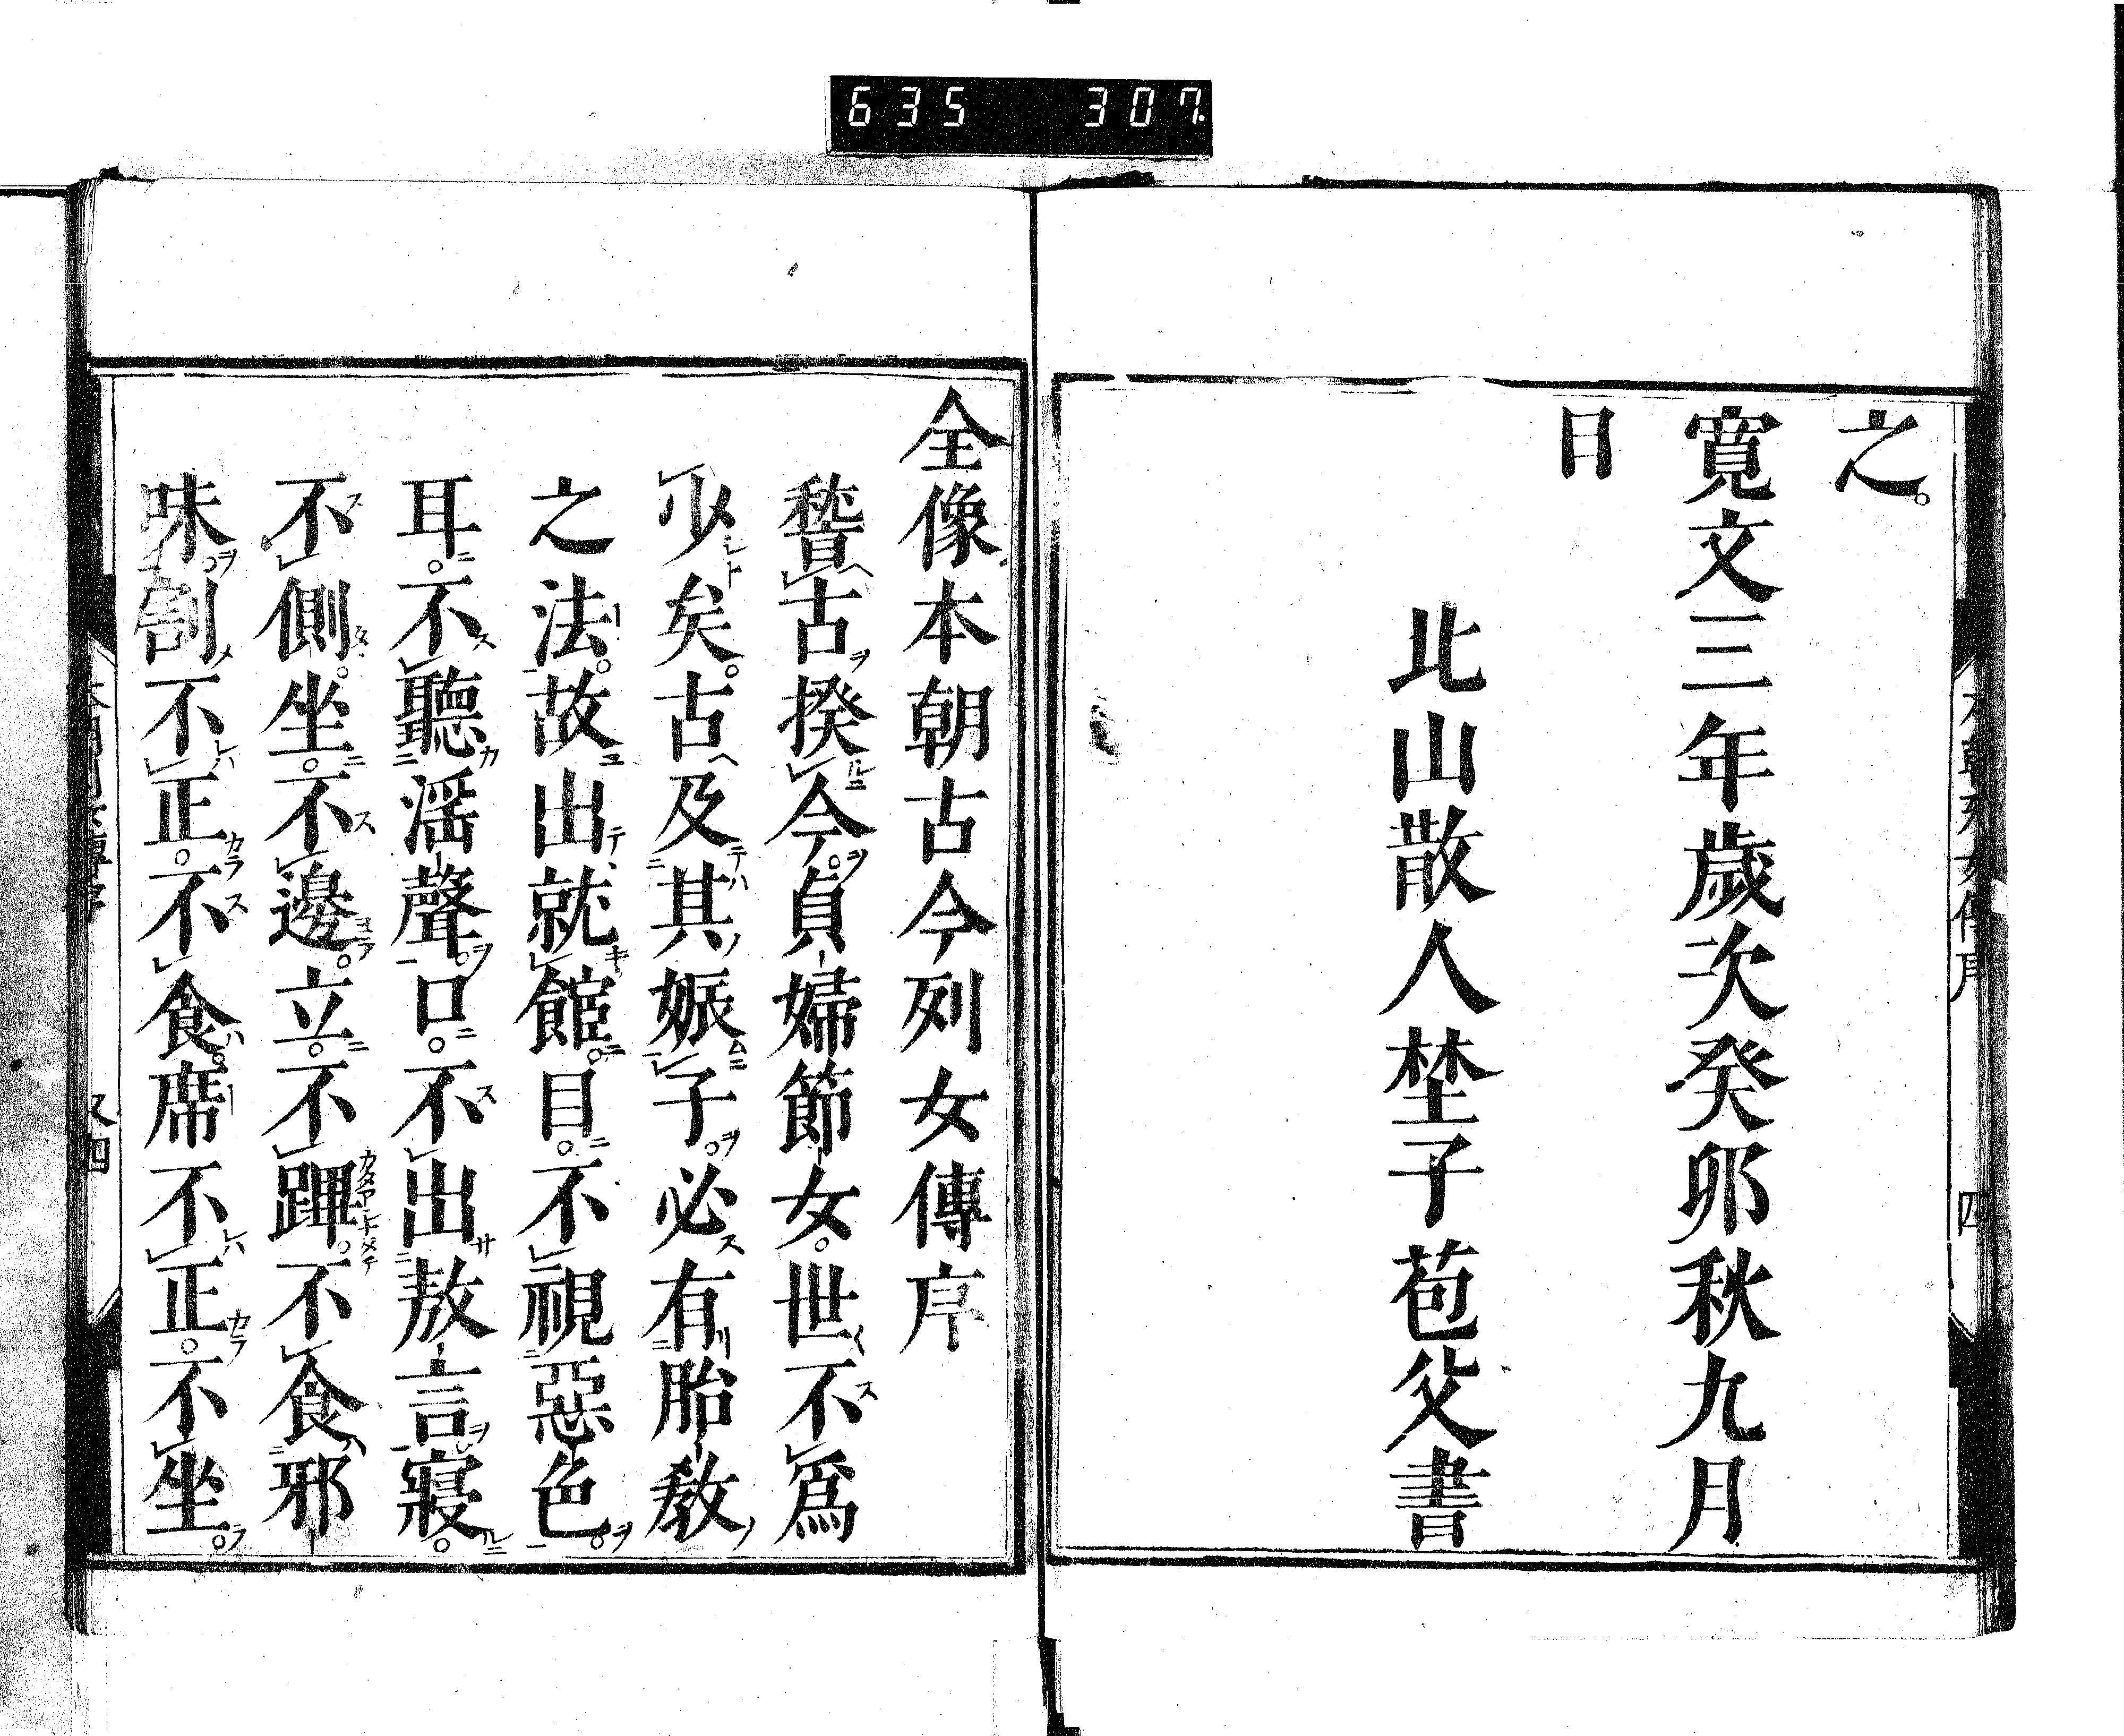 635 307
之。
寛文三年歲次癸卯秋九月
日
北山散人埜子苞父書
本朝列女傳序
四
全像本朝古今列女傳序
稽古揆今。貞婦節女。世不爲
少矣。古及其娠子。必有胎敎
之法。故出就館。目。不視惡色。
耳。不聽滛聲。口。不出敖言寢。
不側。坐。不邊。立。不蹕。不食邪
味。割不正。不食。席不正。不坐。
又四